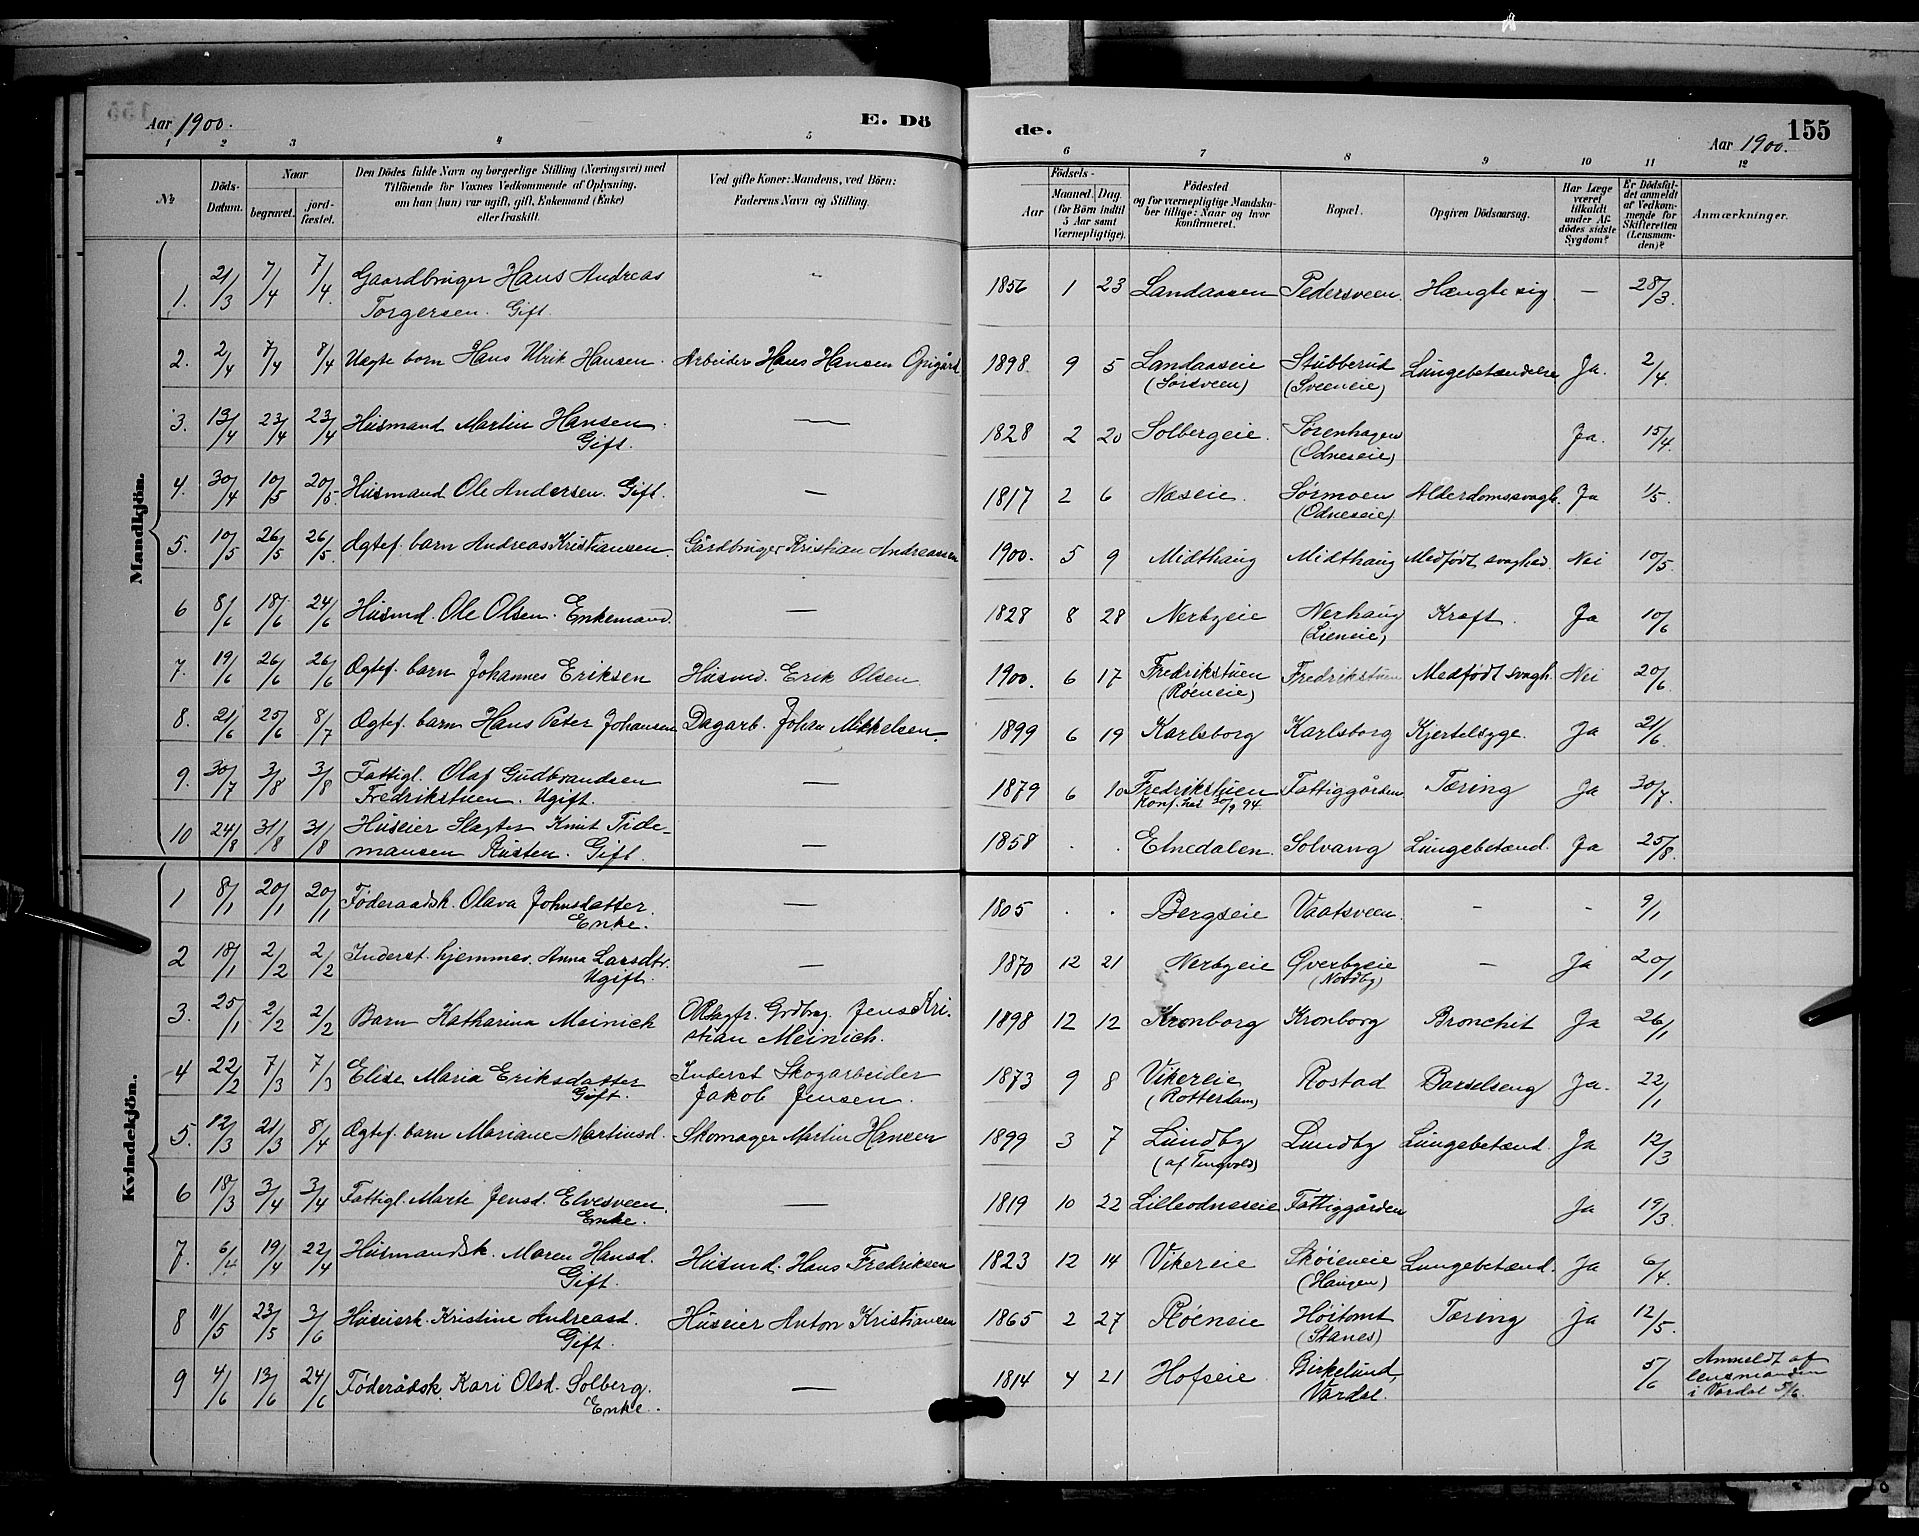 Aar 1900. E. Dö
de. Aar 1900. 155
1 2 3 4 5
6 7 8 9 10 11 12
№ Döds-Datum. Naar begravet. jordfæstet. Den Dödes fulde Navn og borgerlige Stilling (Næringsvei) med Tilföiende for Voxnes Vedkommende af Oplysning, om han (hun) var ugift, gift, Enkemand (Enke) eller fraskilt. Ved gifte Koner: Mandens, ved Börn: Faderens Navn og Stilling.
Födsels- Aar Maaned. Dag. (for Börn indtil 5 Aar samt Værnepligtige). Födested og for værnepligtige Mandskaber tillige: Naar og hvor konfirmeret. Bopæl. Opgiven Dödsaarsag. Har Læge været tilkaldt under Afdödes sidste Sygdom? Er Dödsfaldet anmeldt af Vedkommende for Skifteretten (Lensmanden)? Anmærkninger.
Mandkjön.
1. 21/3 7/4 7/4. Gaardbruger Hans Andreas Torgersen. Gift. " 1856 1 23 Landaasen Pedersveen. Hængte sig. — 28/3.
2. 2/4 7/4 8/4 Uægte born Hans Ulrik Hansen. Arbeider Hans Hansen Opigård 1898. 9 5 Landaaseie (Sørsveen) Stubberud (Sveeneie) Lungebetændelse Ja. 2/4.
3. 13/4 23/4 23/4 Husmand Martin Hansen. Gift. — 1828 2 20 Solbergeie. Sørenhagen (Odneseie) Ja. 15/4.
4. 30/4 10/5 20/5. Husmand Ole Andersen. Gift. — 1817 2 6 Næseie. Sørmoen (Odneseie) Alderdomssvagh. Ja 1/5.
5. 10/5 26/5 26/5. Ægtef. barn Andreas Kristiansen Gårdbruger Kristian Andreassen 1900. 5 9 Midthaug Midthaug Medfödt svaghed. Nei 10/5.
6 8/6 18/6 24/6 Husmd. Ole Olsen. Enkemand. — 1828 8 28 Nerbyeie Nerhaug (Lieneie) Kræft. Ja 10/6
7. 19/6 26/6 26/6 Ægtef. barn Johannes Eriksen Husmd. Erik Olsen 1900. 6 17 Fredrikstuen (Roeneie) Fredrikstuen Medfödt svagh. Nei 20/6.
8. 21/6 25/6 8/7 Ægtef. barn Hans Peter Johansen Dagarb. Johan Mikkelsen. 1899 6 19 Karlsborg Karlsborg Kjertelsyge. Ja 21/6.
9. 30/7 3/8 3/8 Fattigl. Olaf Gudbrandsen Fredrikstuen. Ugift. — 1879 6 10 Fredrikstuen Konf. 94. Fattiggården Tæring Ja 30/7.
10. 24/8 31/8 31/8 Huseier Slagter Knut Tidemansen Rusten. Gift. — 1858 . . Etnedalen. Solvang Lungebetænd. Ja 25/8.
Kvindekjön.
1 8/1 20/1 20/1 Føderaadsk. Olava Johnsdatter. Enke. — 1805 . . Bergseie Vaatsveen. – – 9/1
2 18/1 2/2 2/2 Inderst. hjemmev. Anna Larsdtr. Ugift. — 1870 12 21 Nerbyeie Øverbyeie (Nordby) — Ja 20/1
3. 25/1 2/2 2/2 Barn Katharina Meinich Grdbrug. Jens Kristian Meinich. 1898 12 12 Kronborg Kronborg Bronchit Ja 26/1
4 22/2 7/3 7/3 Elise Maria Eriksdatter Gift. Inderst Skogarbeider Jakob Jensen. 1873 9 8 Vikereie (Rotterdam) Rostad Barselseng Ja. 22/1
5. 12/3 21/3 8/4 Ægtef. barn Mariane Martinsd. Skomager Martin Hansen 1899 3 7 Lundby (af Tingvold) Lundby Lungebetænd. Ja 12/3
6 18/3 3/4 3/4 Fattigl. Marte Jensd. Elvesveen. Enke. — 1819 10 22 Lilleodneseie Fattiggården Ja 19/3.
7. 6/4 19/4 22/4 Husmandsk. Maren Hansd. Gift. Husmd. Hans Fredriksen 1823 12 14 Vikereie Skøieneie (Haugen) Lungebetænd. Ja 6/4.
8 11/5 23/5 3/6 Huseierk. Kristine Andreasd. Gift. Huseier Anton Kristiansen 1865 2 27 Røeneie Høitomt (Stanes) Tæring Ja 12/5.
9 4/6 13/6 24/6 Føderådsk. Kari Olsd. Solberg. Enke. — 1814 4 21 Hofseie Birkelund, Vardal. 5/6 Anmeldt af lensmanden i Vardal 5/6.